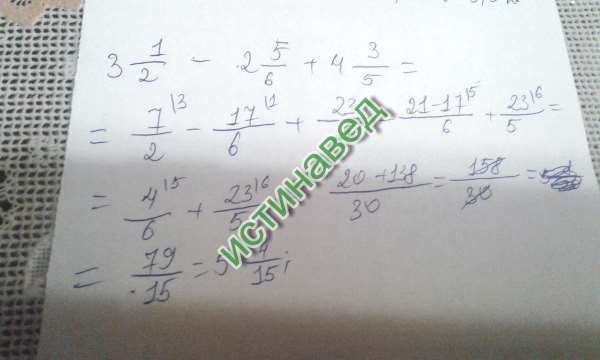 3 1/2 - 2 5/6 + 4 3/5 =
= 7/2 - 17/6 + 21-17/6 + 23/5 =
= 4/6 + 23/5 20+138/30 = 158/30 =
= 79/15 = 5 /15;
истинавед